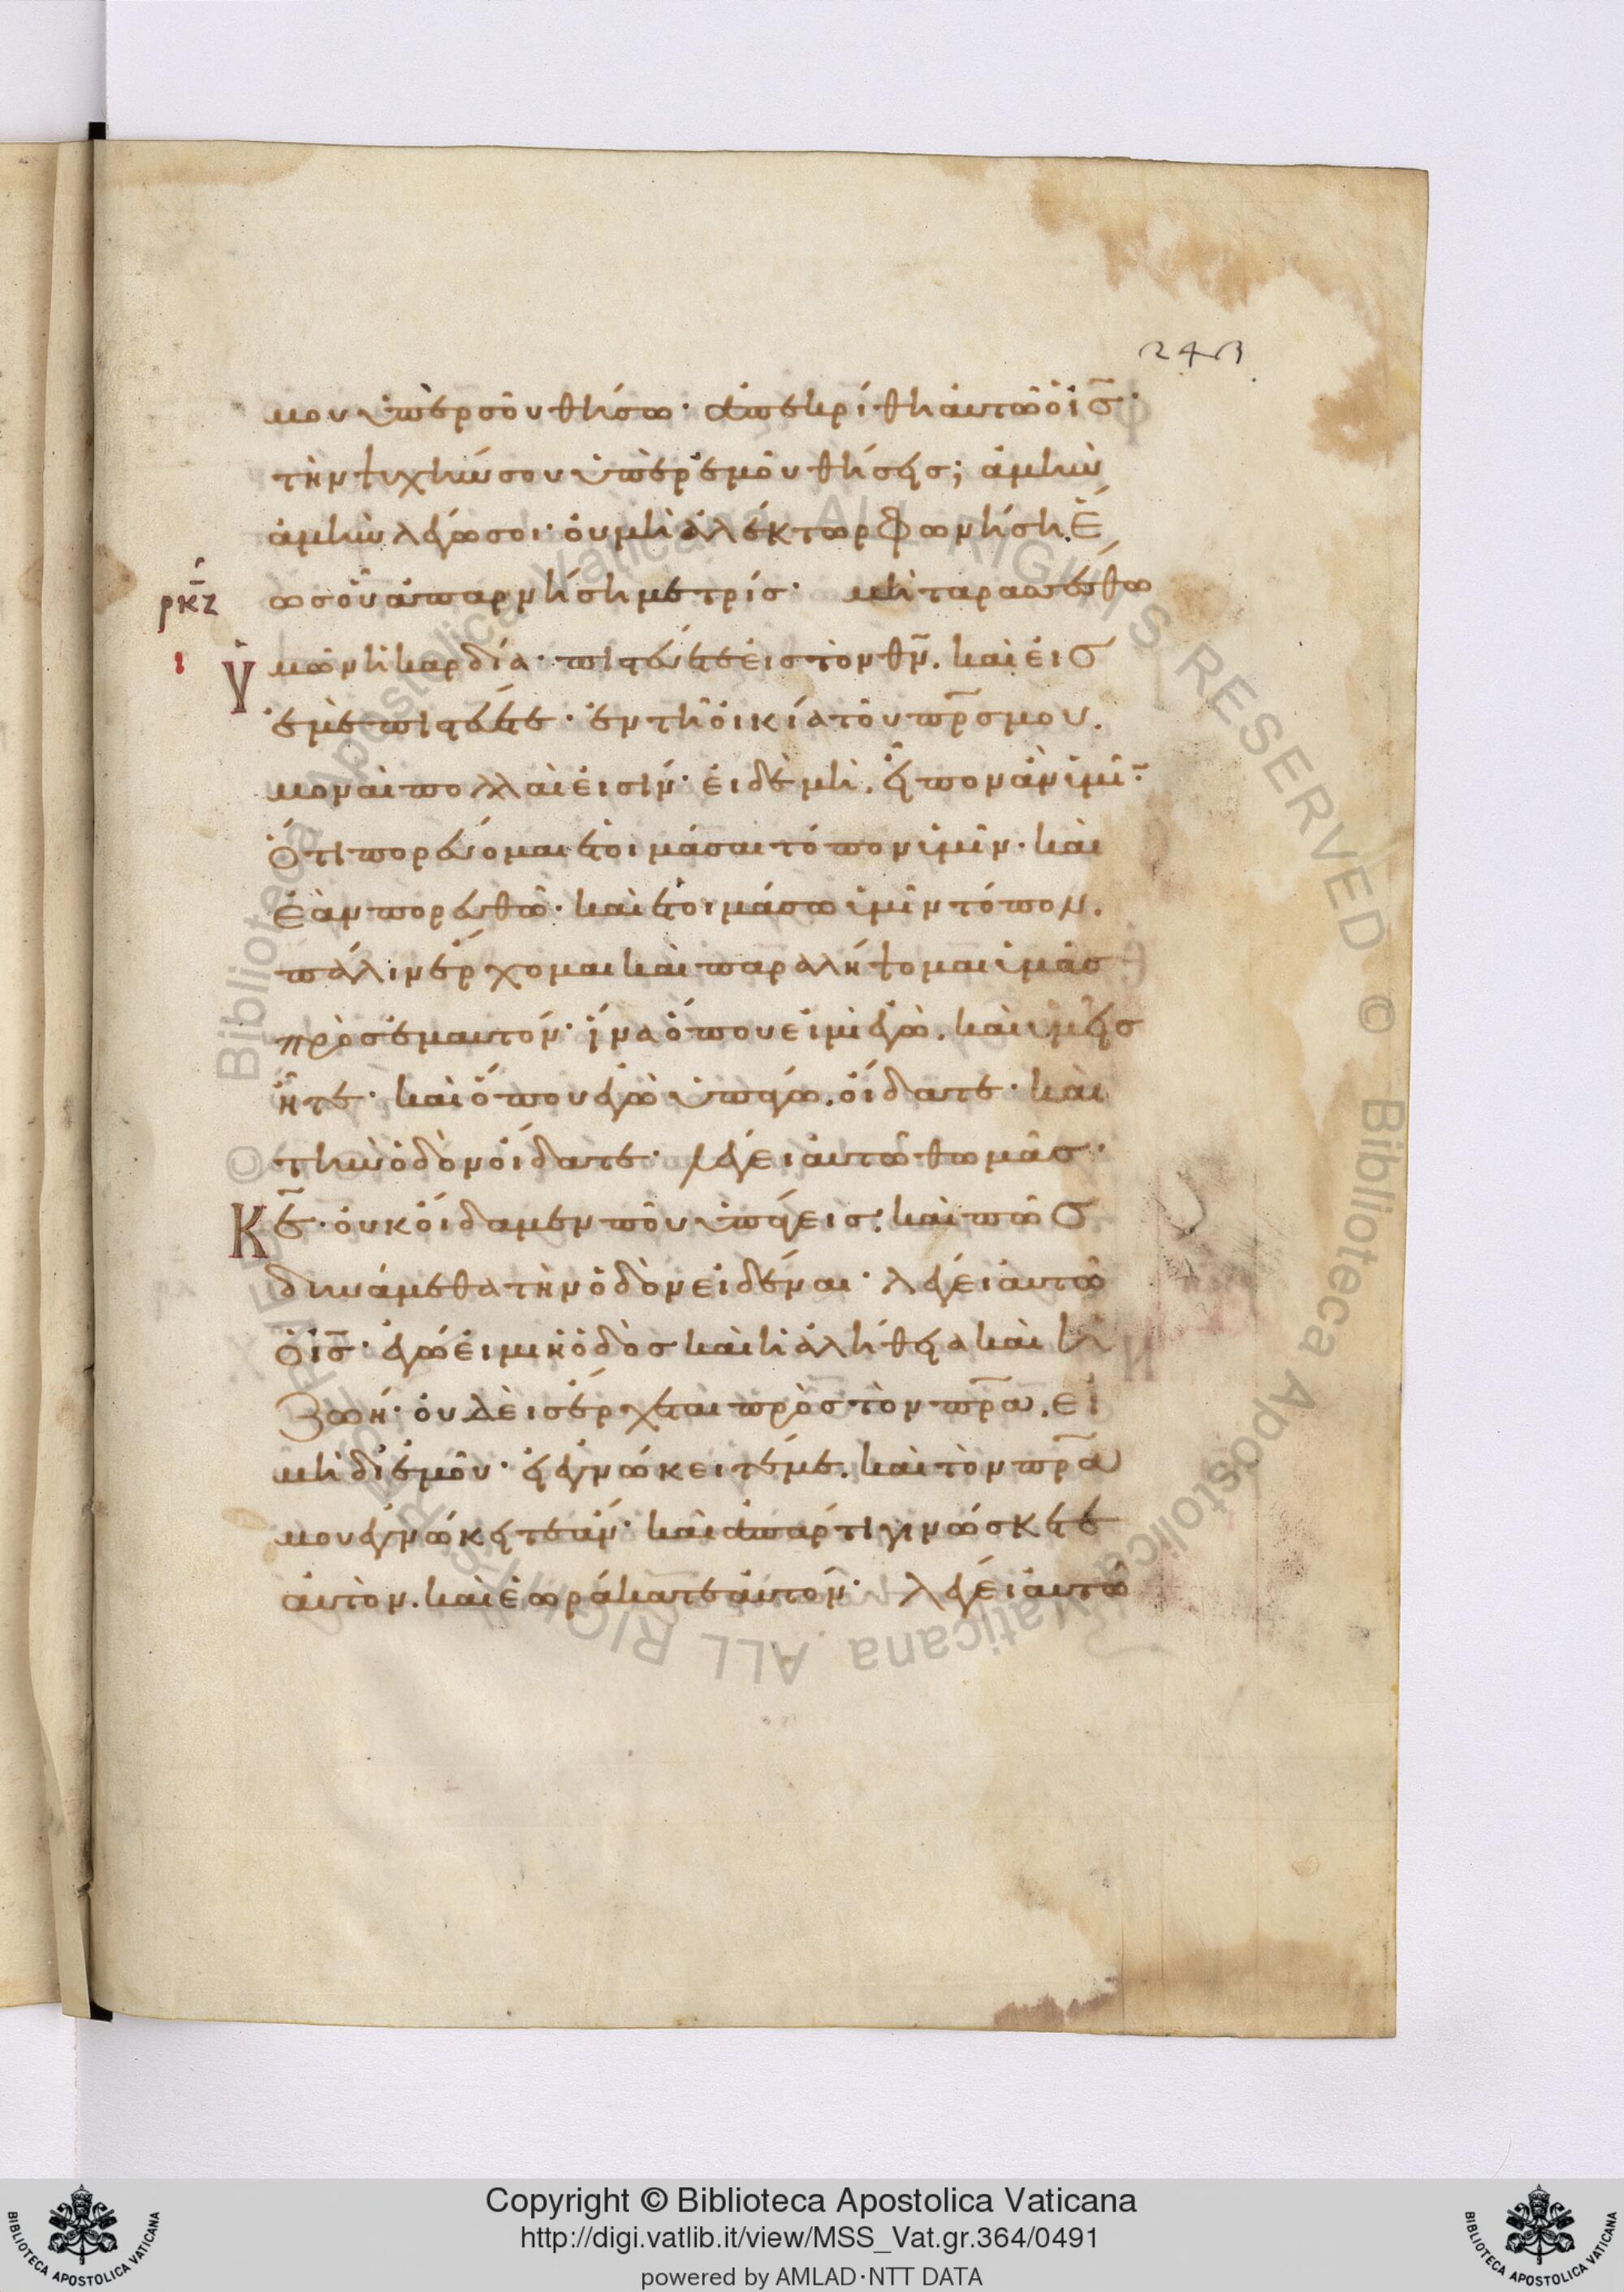 243
μου ὑπὲρ σοῦ θήσω· ἀπεκρίθη αὐτῶ ὁ ι̅σ̅·
τὴν ψυχήν σου ὑπὲρ ἐμοῦ θήσεις; ἀμὴν
ἀμὴν λέγω σοι· οὐ μὴ ἀλέκτωρ φωνήση. ἕ
ρκζ ως οὗ ἀπαρνήση με τρίς· μὴ ταρασσέσθω
ι ὑμῶν ἡ καρδία· πιστεύετε εἰς τὸν θ̅ν̅. καὶ εἰς
ἐμὲ πιστεύετε· ἐν τῆ οἰκία τοῦ π̅ρ̅σ̅ μου.
μοναὶ πολλαὶ εἰσίν· εἰ δὲ μή. εἶπον ἂν ὑμῖ̅·
ὅτι πορεύομαι ἑτοιμάσαι τόπον ὑμῖν· καὶ
ἐὰν πορευθῶ· καὶ ἑτοιμάσω ὑμῖν τόπον.
πάλιν ἔρχομαι καὶ παραλήψομαι ὑμᾶς
πρὸς ἐμαυτόν· ἵνα ὅπου εἰμὶ ἐγὼ. καὶ ὑμεῖς
ἦτε· καὶ ὅπου ἐγὼ ὑπάγω. οἴδατε· καὶ
τὴν ὁδὸν οἴδατε· λέγει αὐτῶ θωμᾶς·
Κ̅ε̅· οὐκ οἴδαμεν ποῦ ὑπάγεις· καὶ πῶς
δυνάμεθα τὴν ὁδὸν εἰδέναι· λέγει αὐτῶ
ὁ ι̅σ̅· ἐγώ εἰμι ἡ ὁδὸς καὶ ἡ ἀλήθεια καὶ ἡ
ζωή· οὐδεὶς ἔρχεται πρὸς τὸν π̅ρ̅α̅. εἰ
μὴ δι' ἐμοῦ· εἰ ἐγνώκειτέ με. καὶ τὸν π̅ρ̅α̅
μου ἐγνώκειτε ἄν· καὶ ἀπάρτι γινώσκετε
αὐτὸν. καὶ ἑωράκατε αὐτόν· λέγει αὐτῶ
Copyright © Biblioteca Apostolica Vaticana
http://digi.vatlib.it/view/MSS_Vat.gr.364/0491
powered by AMLAD·NTT DATA